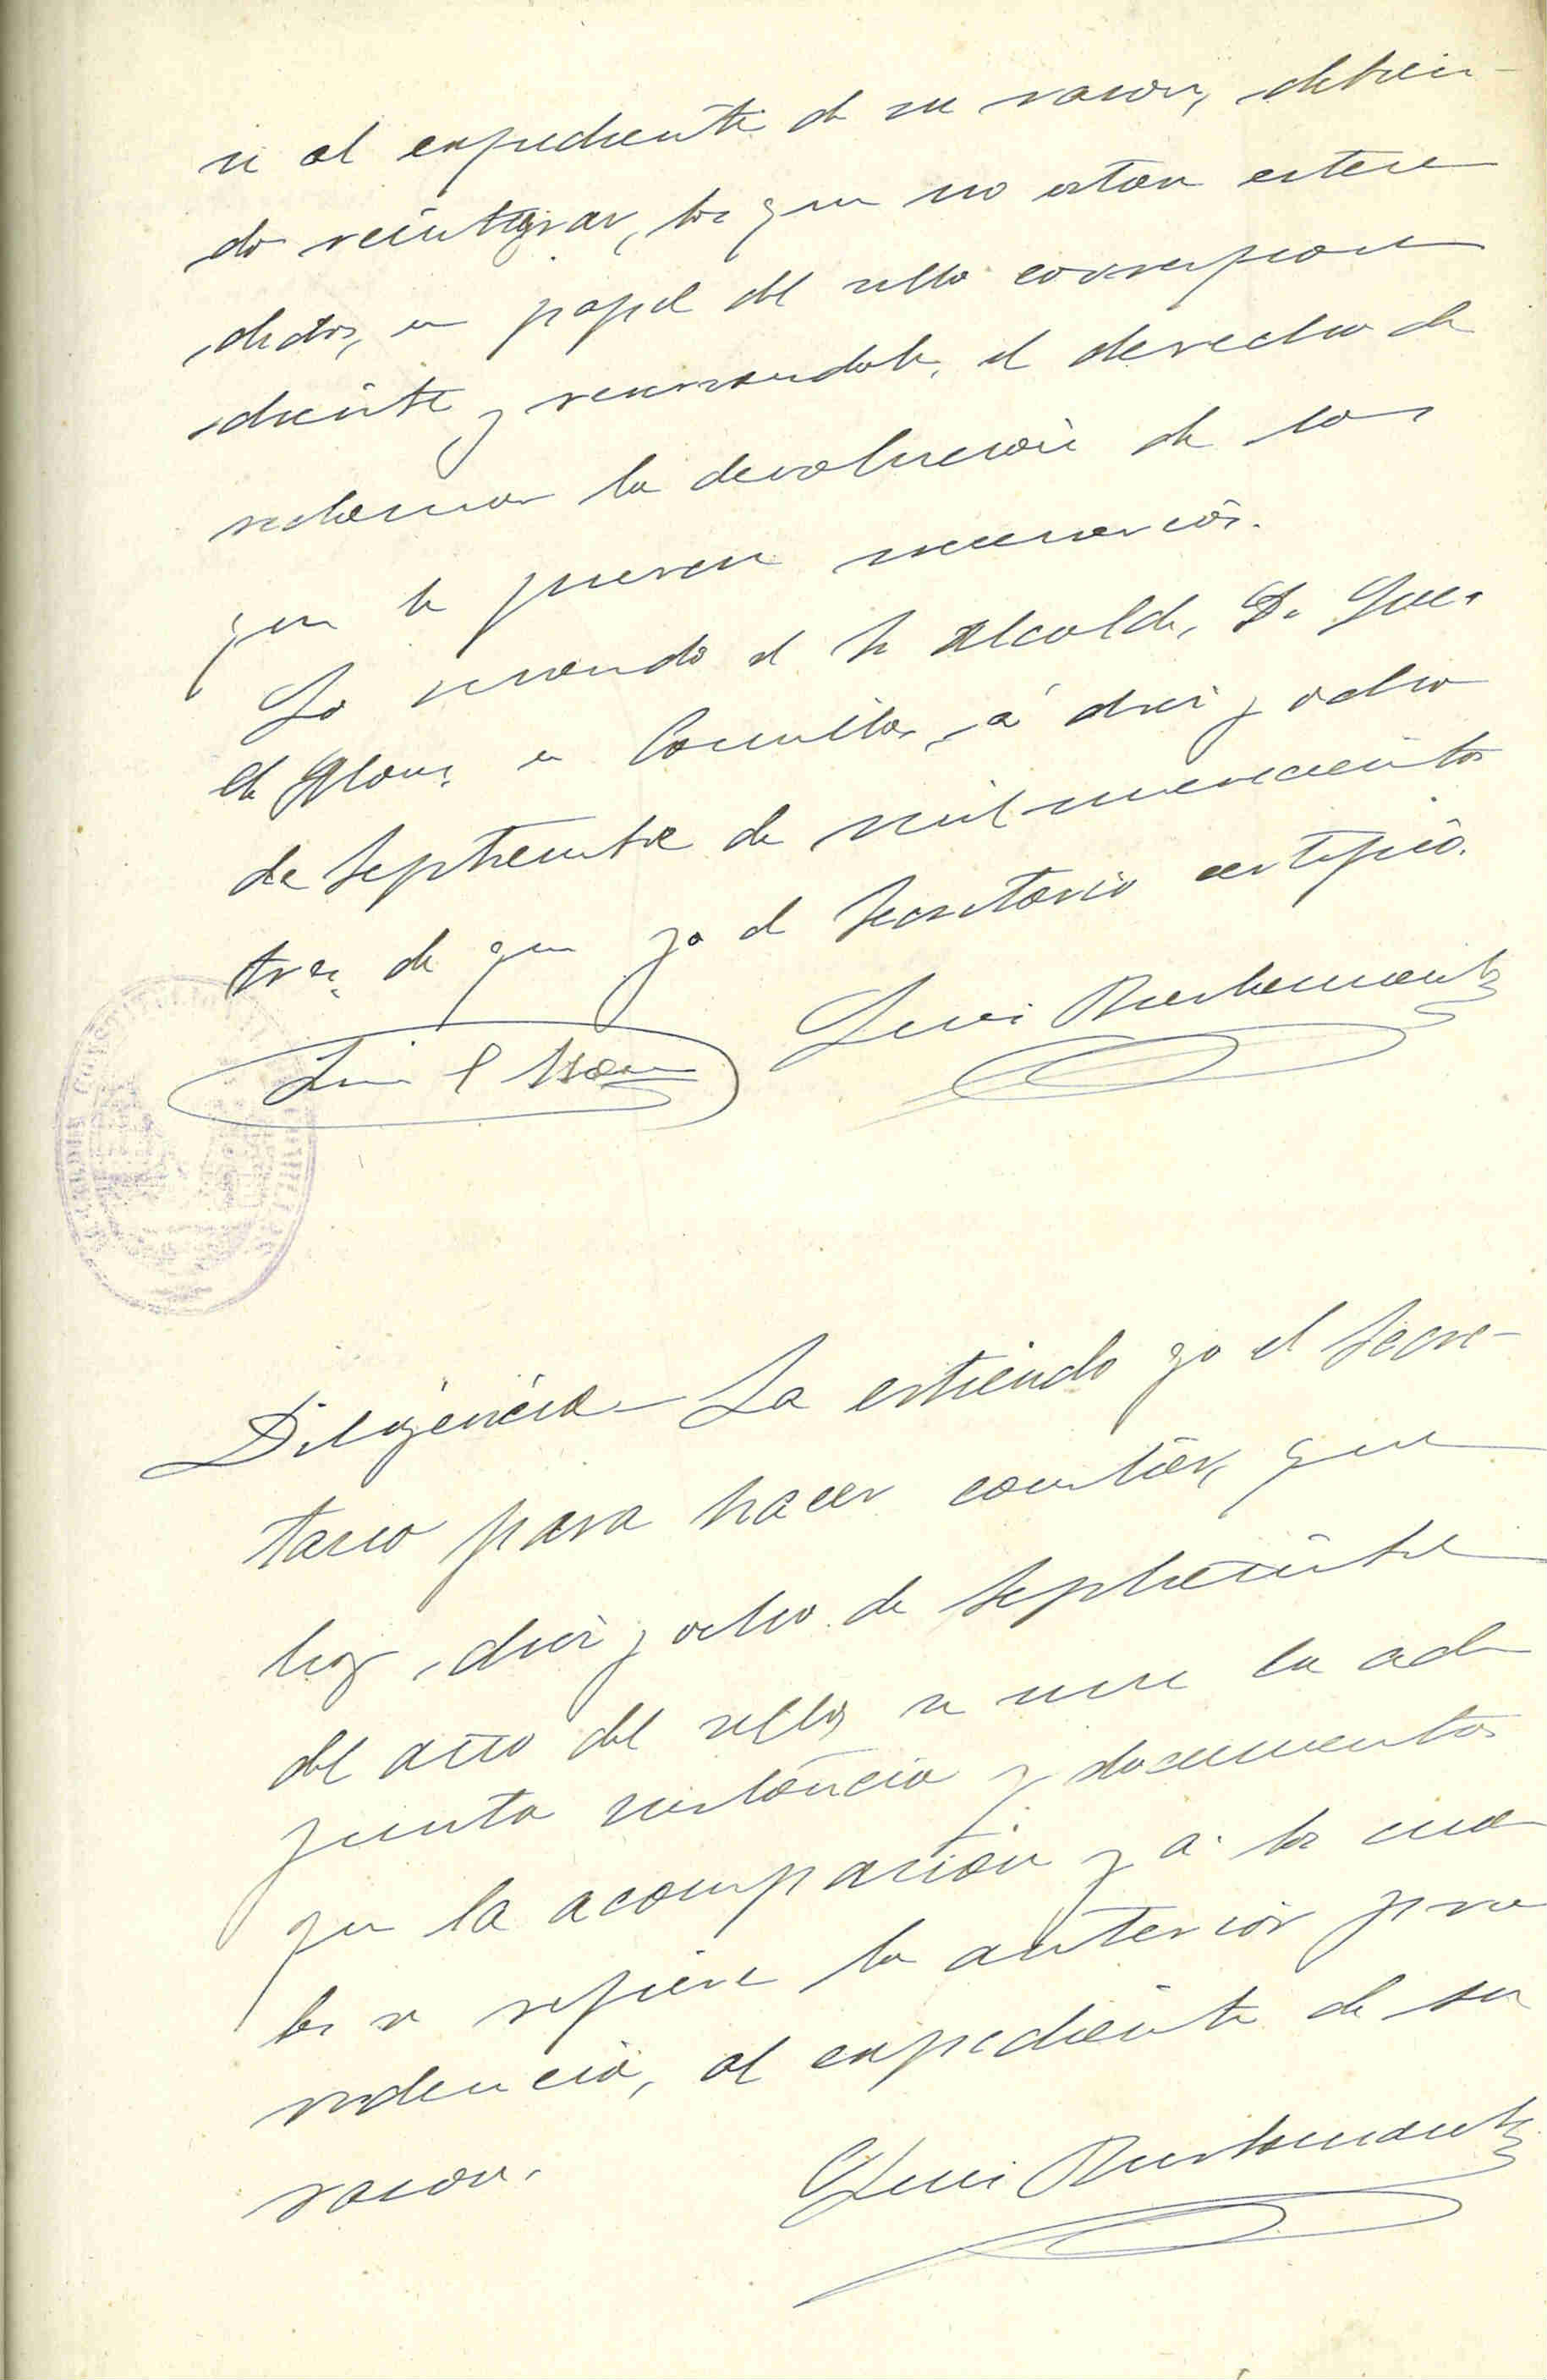 se al expediente de su razon, debien-
do reintegrar, los que no estan esten
didos, en papel del sello correspon
diente y reservandole, el derecho de
reclamar la devolucion de los
que le fueren necesarios.
Lo mando el Sr Alcalde, D. Luis
de en Comillas, á diez y ocho
de Septiembre de mil novecientos
tres, de que yo el Secretario certifico.
Luis Bustamante
Luis P
Diligencia - La extiendo yo el Secre-
tario para hacer constar, que
hoy, diez y ocho de Septiembre
del año del sello, se une la ad
junta instancia y documentos
que la acompañan y a los cua
les se refiere la anterior pro
videncia, al expediente de su
razon.
Luis Bustamante